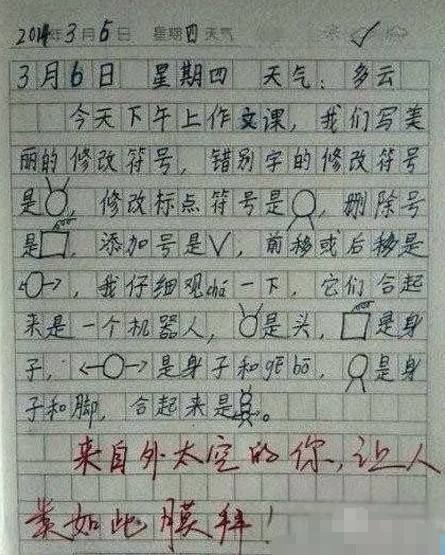 2014年3月6日 星期四 天气
3月6日 星期四 天气：多云
今天下午上作文课，我们写美
丽的修改符号，错别字的修改符号
是 修改标点符号是 ，删除号
是 ，添加号是√，前移或后移是
，我仔细观chá一下，它们合起
来是一个机器人， 是头， 是身
子， 是身子和gē bō， 是身
子和脚，合起来是 。
来自外太空的你，让人
类如此膜拜！